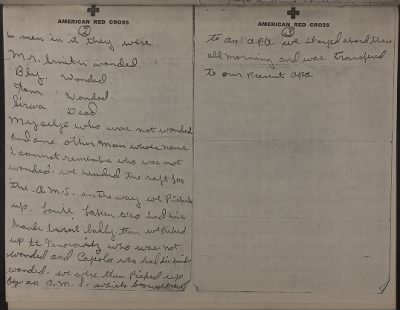 AMERICAN RED CROSS
2
6 men in it they were
Mr. wonded.
Bly. Wonded
Tom Wonded.
Dead
Myselfe who was not wonded
and one other man whoes name
I cannot remember who was not
wonded. we headed the raft for
the A.M.S. on the way we Picked
up who had his
hands burnt badly, then we Picked
up who was not
wonded and who had his
wonded. we were then Picked up
by an A.M.S. which brought us
AMERICAN RED CROSS
3
to an A.P.A we stayed abord there
all morning and was transferd
to our present APA